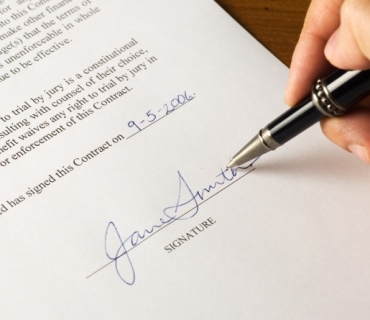 for
to this Contract
make other financ
ge(s) that the terms of
is unenforceable in whole
ue to be effective.
to trial by jury is a constitutional
sulting with counsel of their choice,
nefit waives any right to trial by jury in
or enforcement of this Contract.
ed has signed this Contract on 9-5-2006.
Jane Smith
SIGNATURE